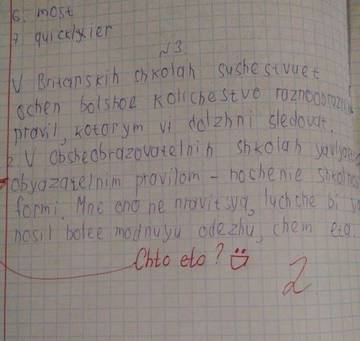 6. most
7 quicklykier
№3
V Britanskih chkolah sushestvuet
ochen bolshoe kolichestvo raznoobrazn
pravil, kotorym vi dolzhni sledovat.
2. V obsheobrazovatelnih shkolah yavlyaet
obyazatelnim pravilom - nochenie shkolno
formi. Mne ono ne nravitsya, luchche bi ya
nosil bolee modnuyu odezhu, chem eto.
Chto eto?
2